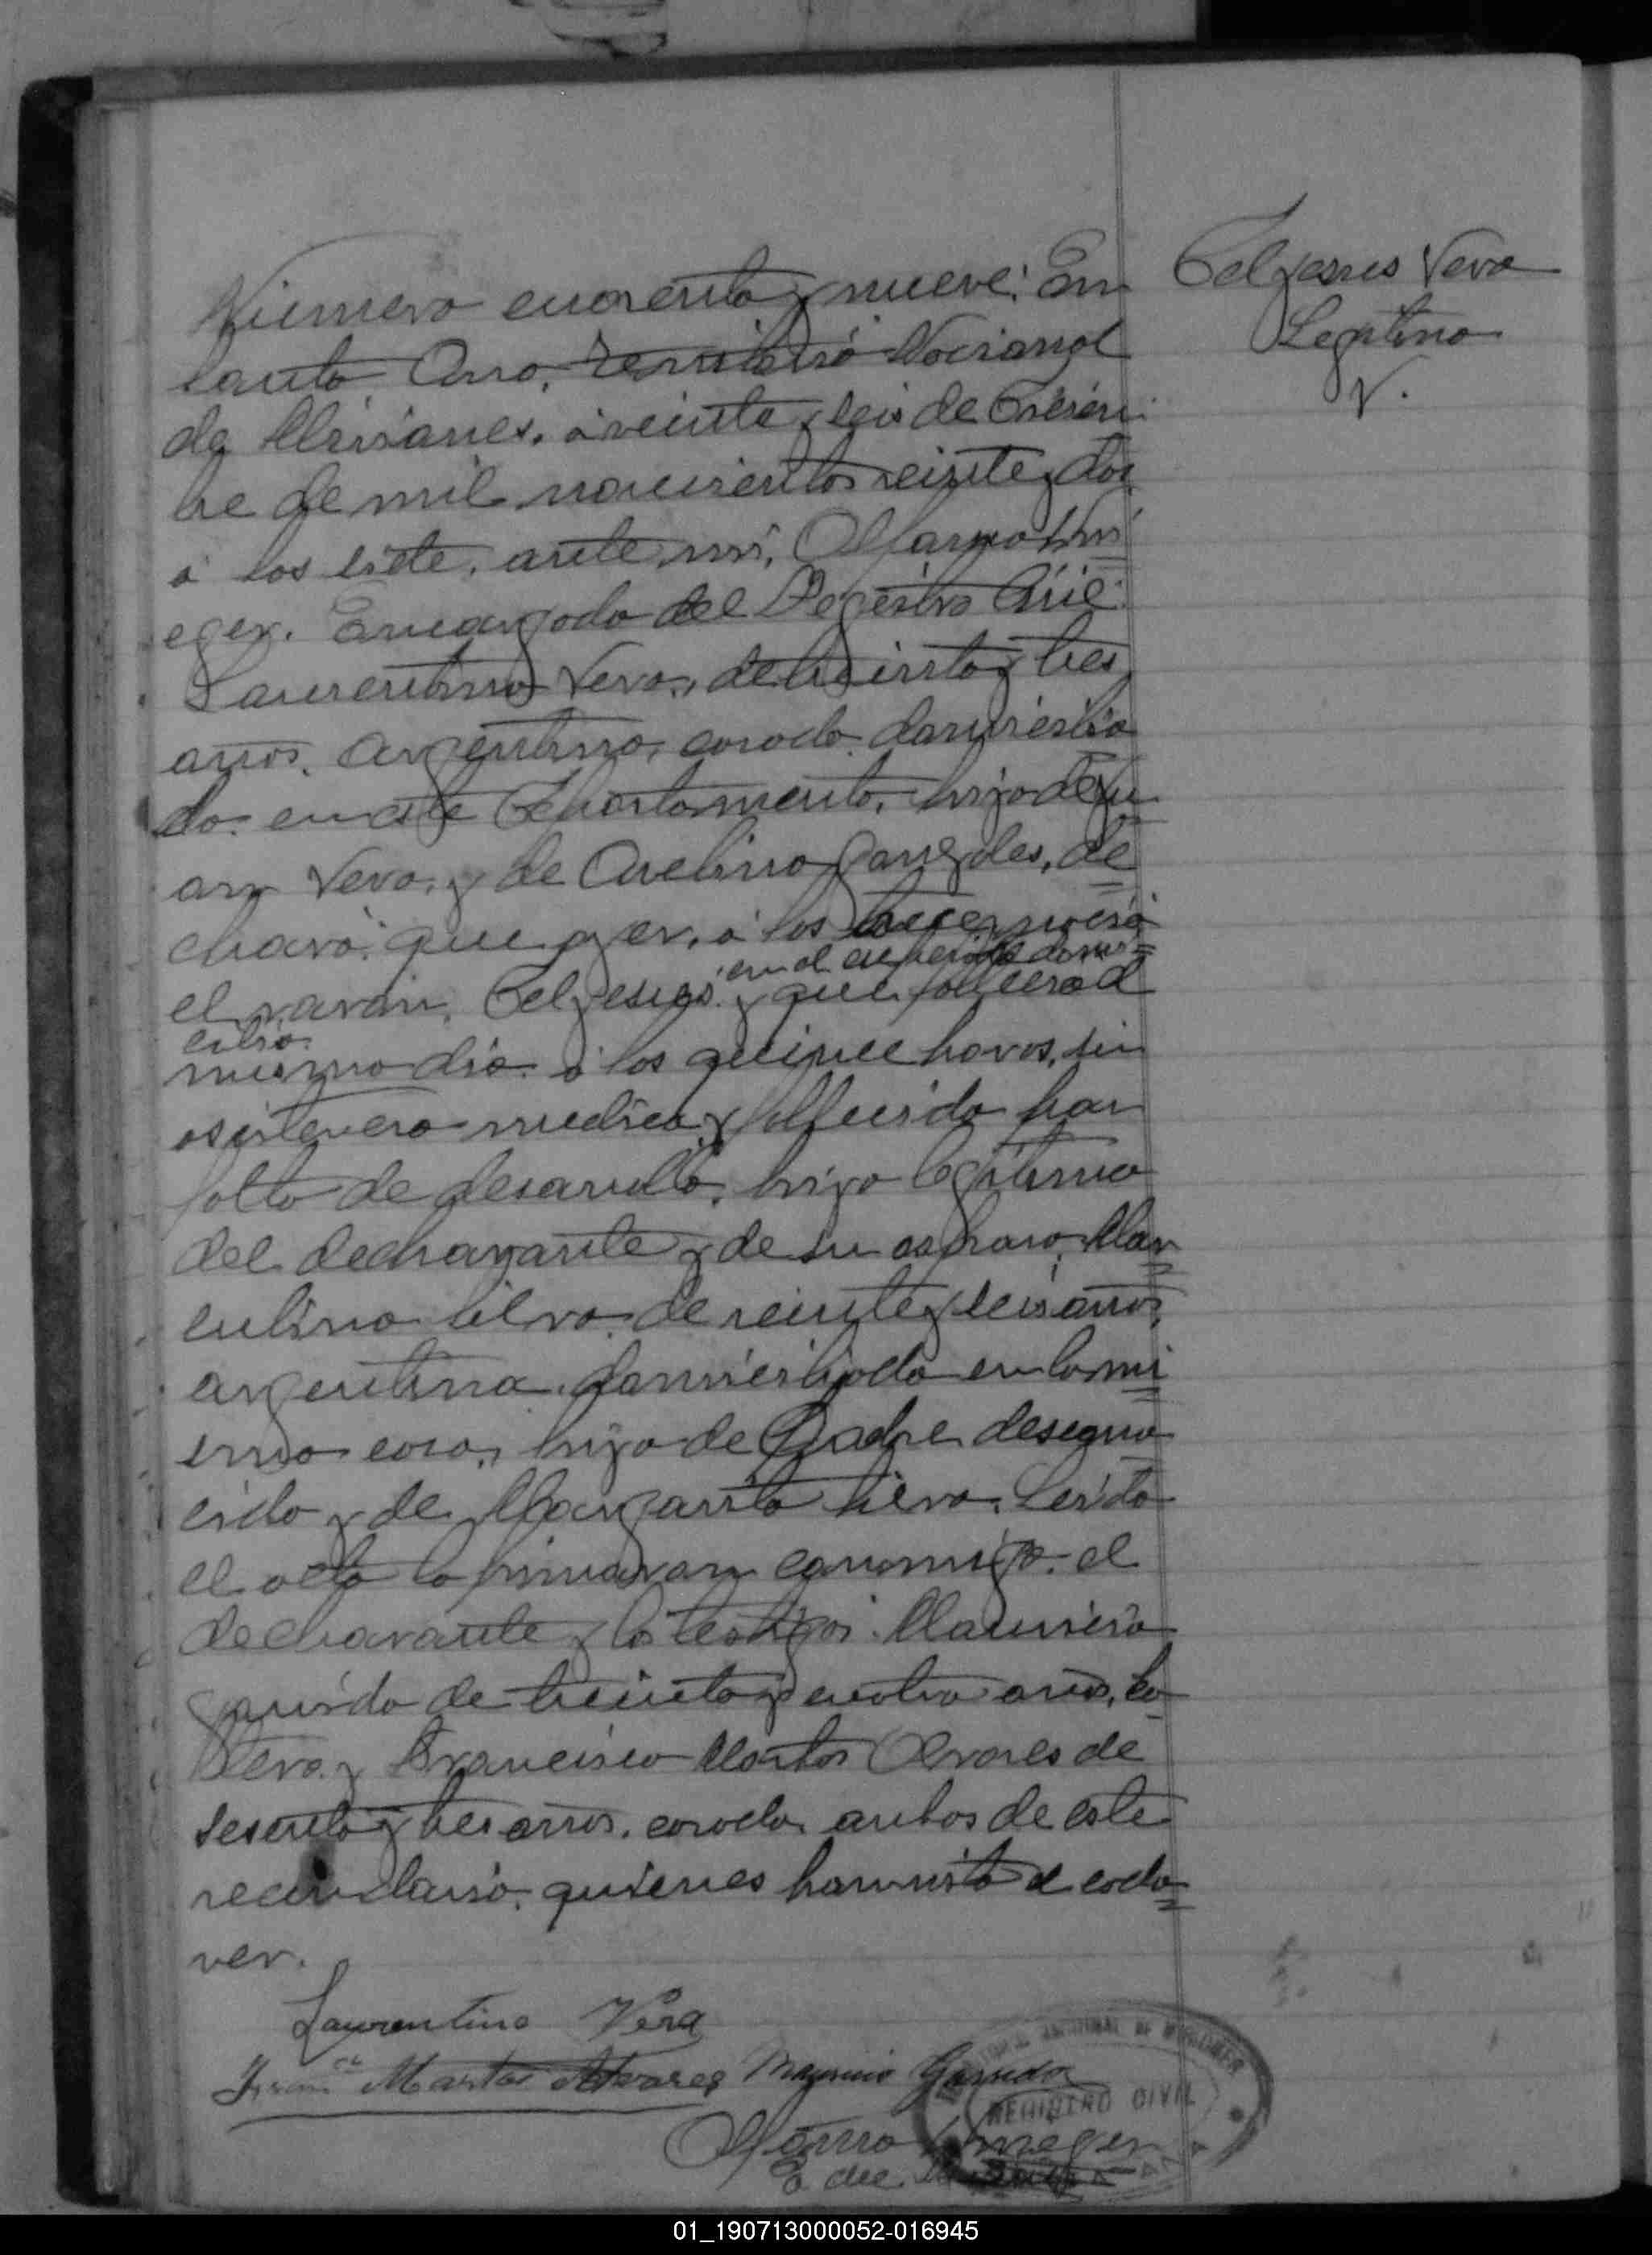 Número cuarenta y nueve: En
Santa Ana, Territorio Nacional
de Misiones, á veinte y seis de Diciem
bre de mil novecientos veinte y dos
a las siete, ante mi, Olfanio
eger, Encargado del Registro Civil
Laurentino Vera, de treinta y tres
años, argentino, casado, domicilia
do en este Departamento, hijo de Ju
an Vera, y de Avelina Gonzales, de
claró: que ayer, á las trece, nació
en el espresado domi=
el varon, y que falleció el
cilio
mismo dia á las quince horas, sin
asistencia medica, y fallecido por
falta de desarrollo, hijo legitimo
del declarante y de su esposa, Mar
culina Silva, de veinte y seis años,
argentina, domiciliada en la mi
sma casa, hija de Padre descono
cido y de Margarita Silva. Leida
el acta la firmaron conmigo, el
declarante y los testigos Mauricio
Garrido de treinta y cuatro años, so
ltero, y Francisco Martos Alvares de
sesenta y tres años, casado, ambos de este
vecindario, quienes han visto el cada
ver.
Laurentino Vera
Franco Martos Alvarez Mauricio Garrido
E. del
REGISTRO CIVIL
Vera
Legitimo
V.
01_190713000052-016945